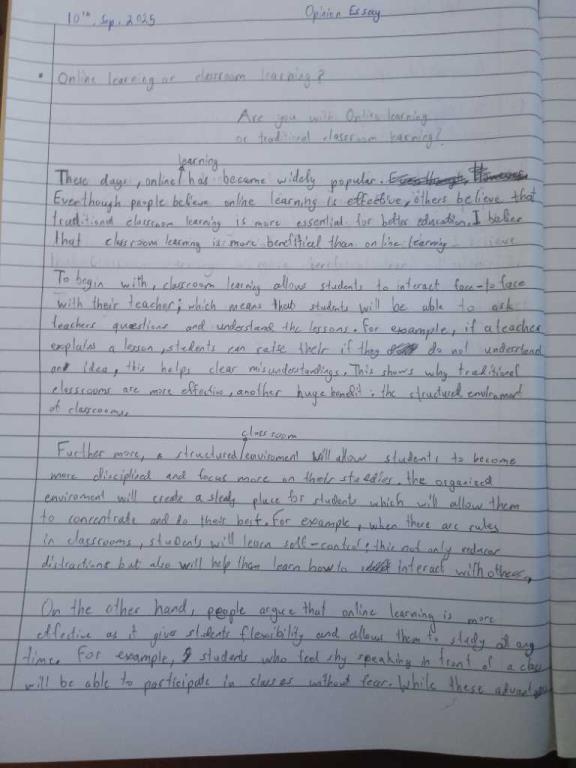 10th, Sep, 2025
Opinion Essay
Online learning or classroom learning?
Are you with Online learning
or traditional classroom learning?
learning
These days, online has became widely popular.
Eventhough people believe online learning is effective, others believe that
traditional classroom learning is more essential for better education. I believe
that classroom learning is more benefitical than online learning
To begin with, classroom learning allows students to interact face-to face
with their teacher; which means that students will be able to ask
teachers questions and understand the lessons. For example, if a teacher
explains a lesson, students can raise their if they do not understand
an idea, this helps clear misunderstandings. This shows why traditional
classrooms are more effective, another huge benefit: the structured enviroment
of classrooms.
classroom
Further more, a structured enviroment will allow students to become
more disciplined and focus more on their studies. the organized
enviroment will create a stedy place for students which will allow them
to concentrate and do their best. For example, when there are rules
in classrooms, students will learn self-control; this not only reduces
distractions but also will help them learn how to interact with others,
On the other hand, people argue that online learning is more
effective as it give students flexibility and allows them to study at any
time. For example, students who feel shy speaking in front of a class
will be able to participate in classes without fear. While these